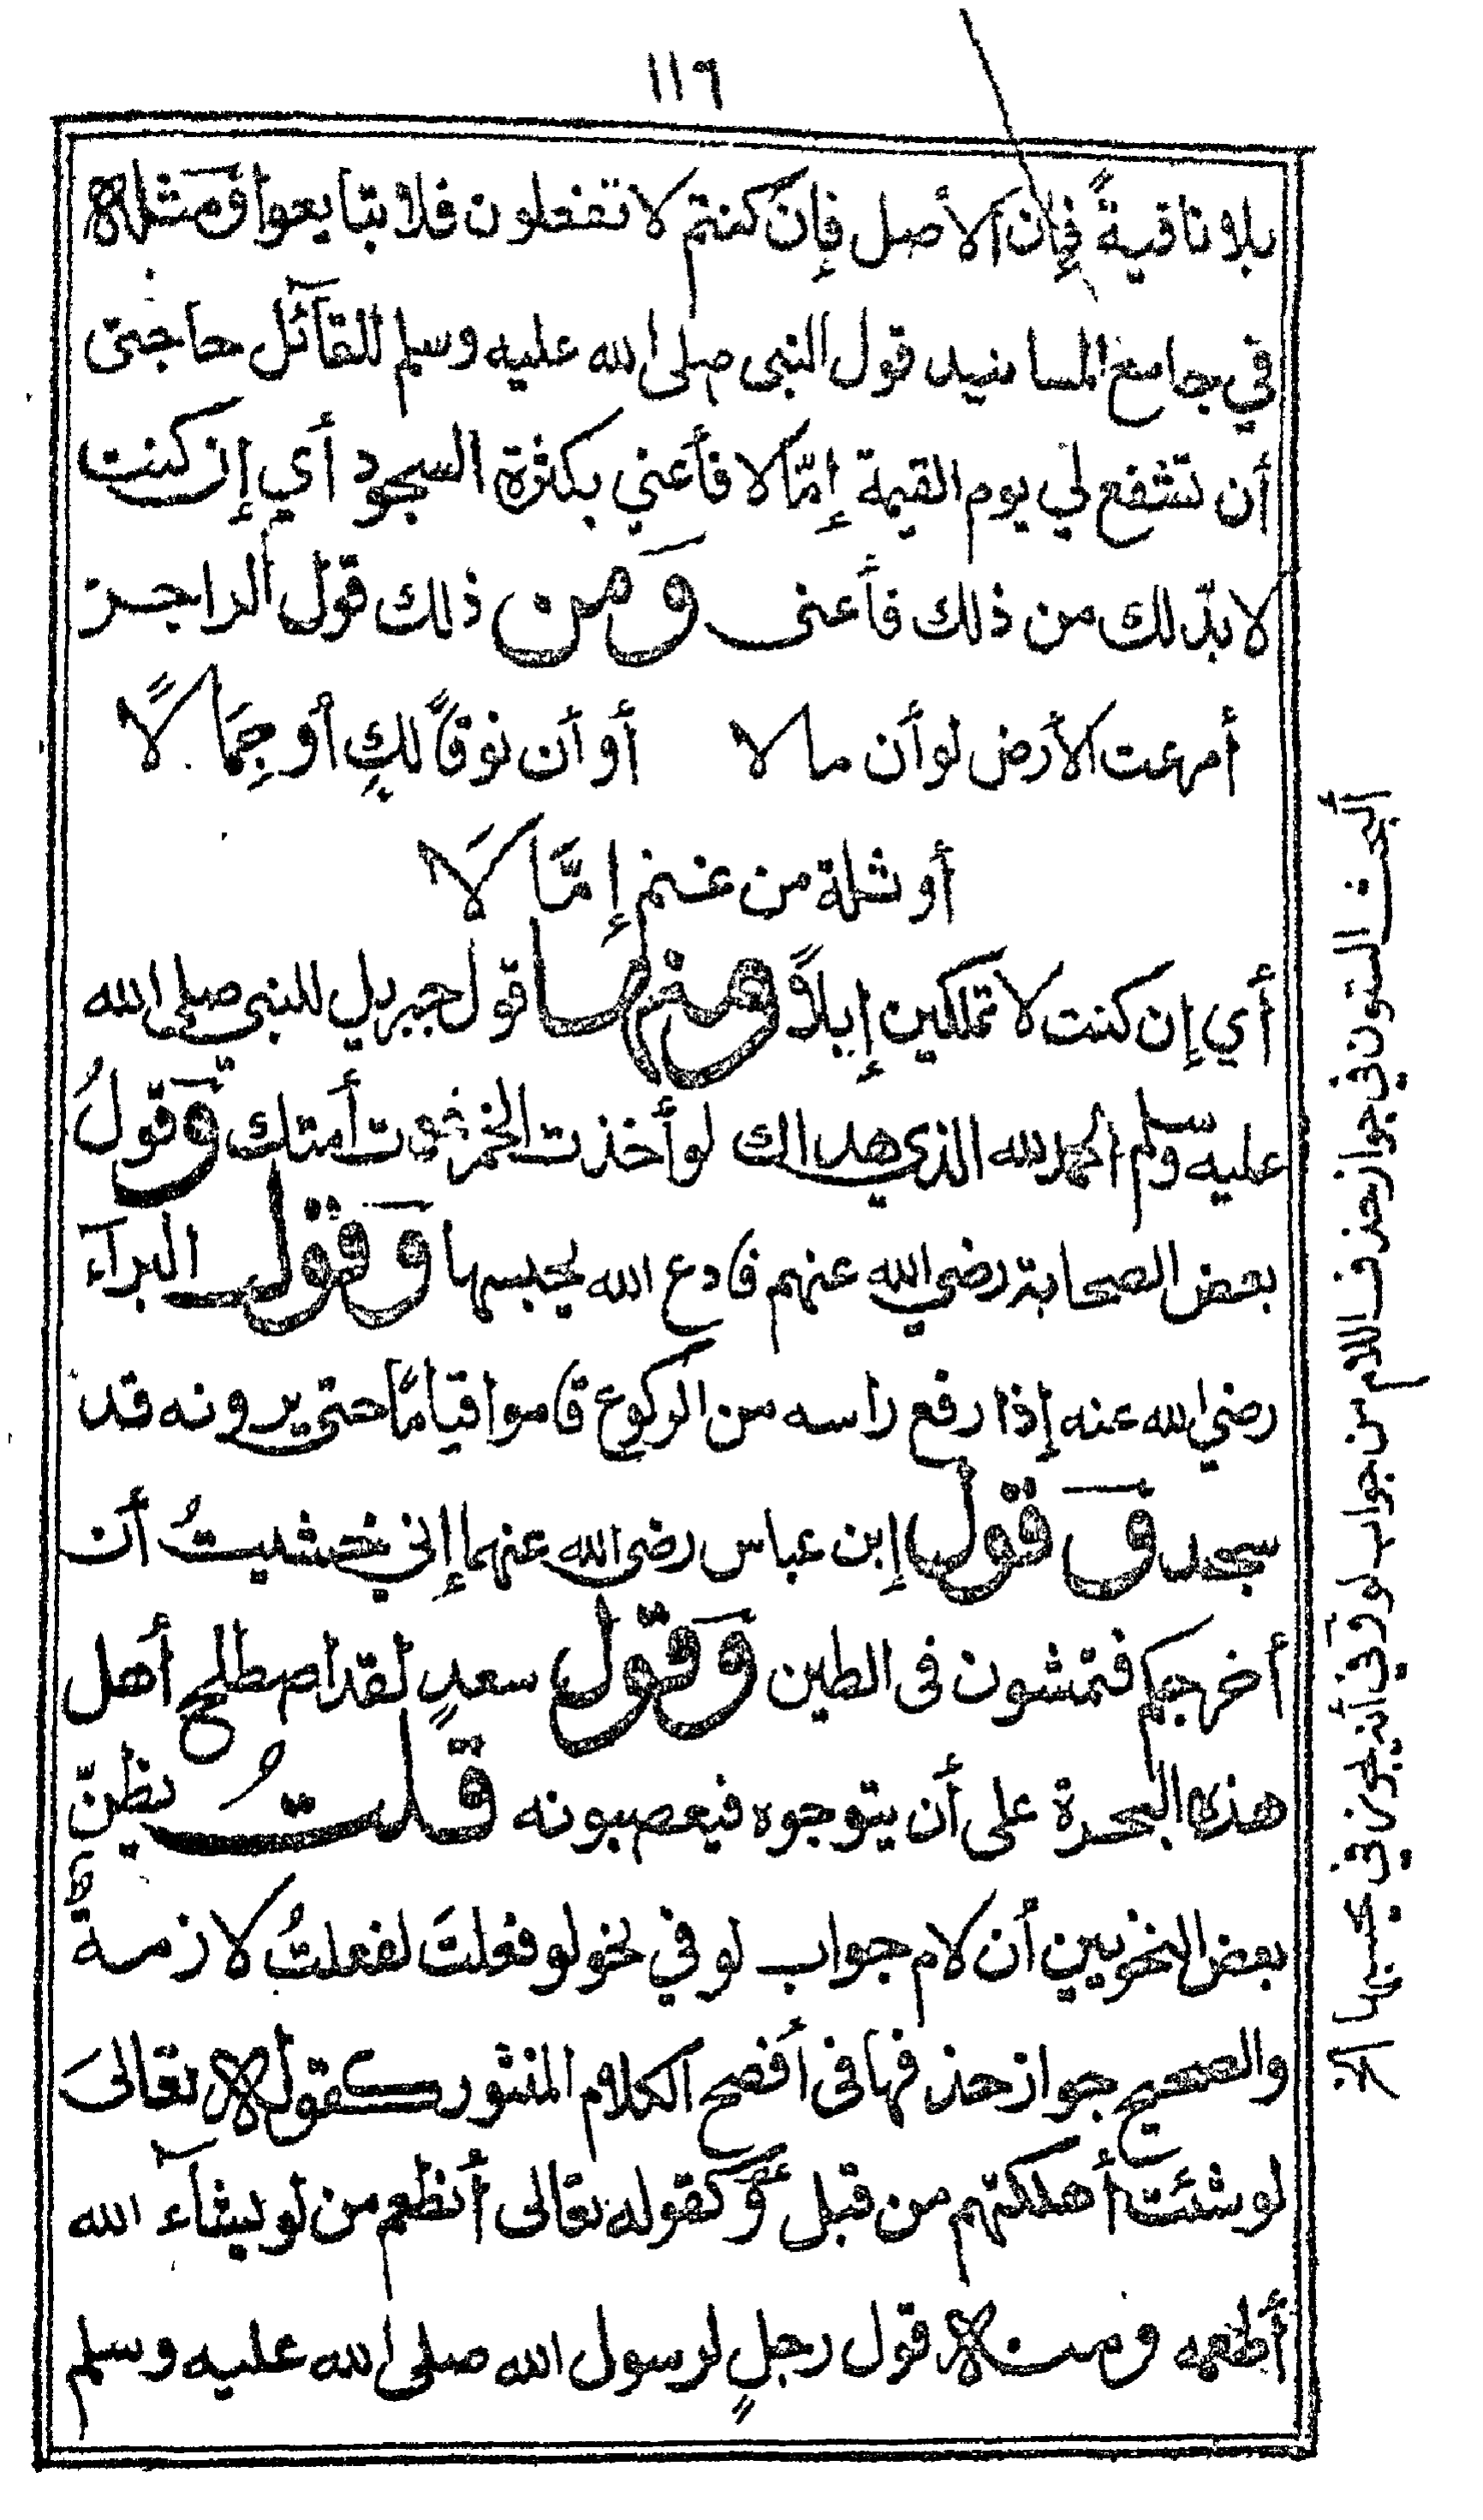 ١١٦
بلا نافيةً فإن الأصل فإن كنتم لا تفعلون فلا تبايعوا ومثله
في جامع المسانيد قول النبي صلى الله عليه وسلم للقآئل حاجتى
أن تشفع لي يوم القيمة إمّا لا فأعني بكثرة السجود أي إن كنت
لا بدّ لك من ذلك فأعنى وَمن ذلك قول الراجز
أمرعت الأرض لو أن مالا أو أن نوقًا لكِ أو جِمَالًا
أو ثلة من غنم إمَّا لَا
أي إن كنت لا تملكين إبلاً ومنها قول جبريل للنبي صلى الله
عليه وسلم الحمد لله الذي هداك لو أخذت الخمر غوت أمتك وَقولُ
بعض الصحابة رضي الله عنهم فادع الله يحبسها وَقول البرآء
رضي الله عنه إذا رفع راسه من الركوع قاموا قيامًا حتى يرونه قد
سجد وَ قول إبن عباس رضى الله عنهما إني خشيتُ أن
أخرجكم فتمشون فى الطين وَقول سعدٍ لقد اصطلح أهل
هذه البحرة على أن يتوجوه فيعصبونه قلتُ يظنّ
بعض النحويين أن لام جواب لو في نحو لو فعلتَ لفعلتُ لازمةً
والصحيح جواز حذفها فى أفصح الكلام المنثور كقوله تعالىَ
لو شئت أهلكتهم من قبل وَكقوله تعالى أنطعم من لو يشآء الله
أطعمه ومنه قول رجلٍ لرسول الله صلى الله عليه وسلم
البحث الستون في جواز حذف اللام من جواب لو وفي أن يجوز في مجيبها